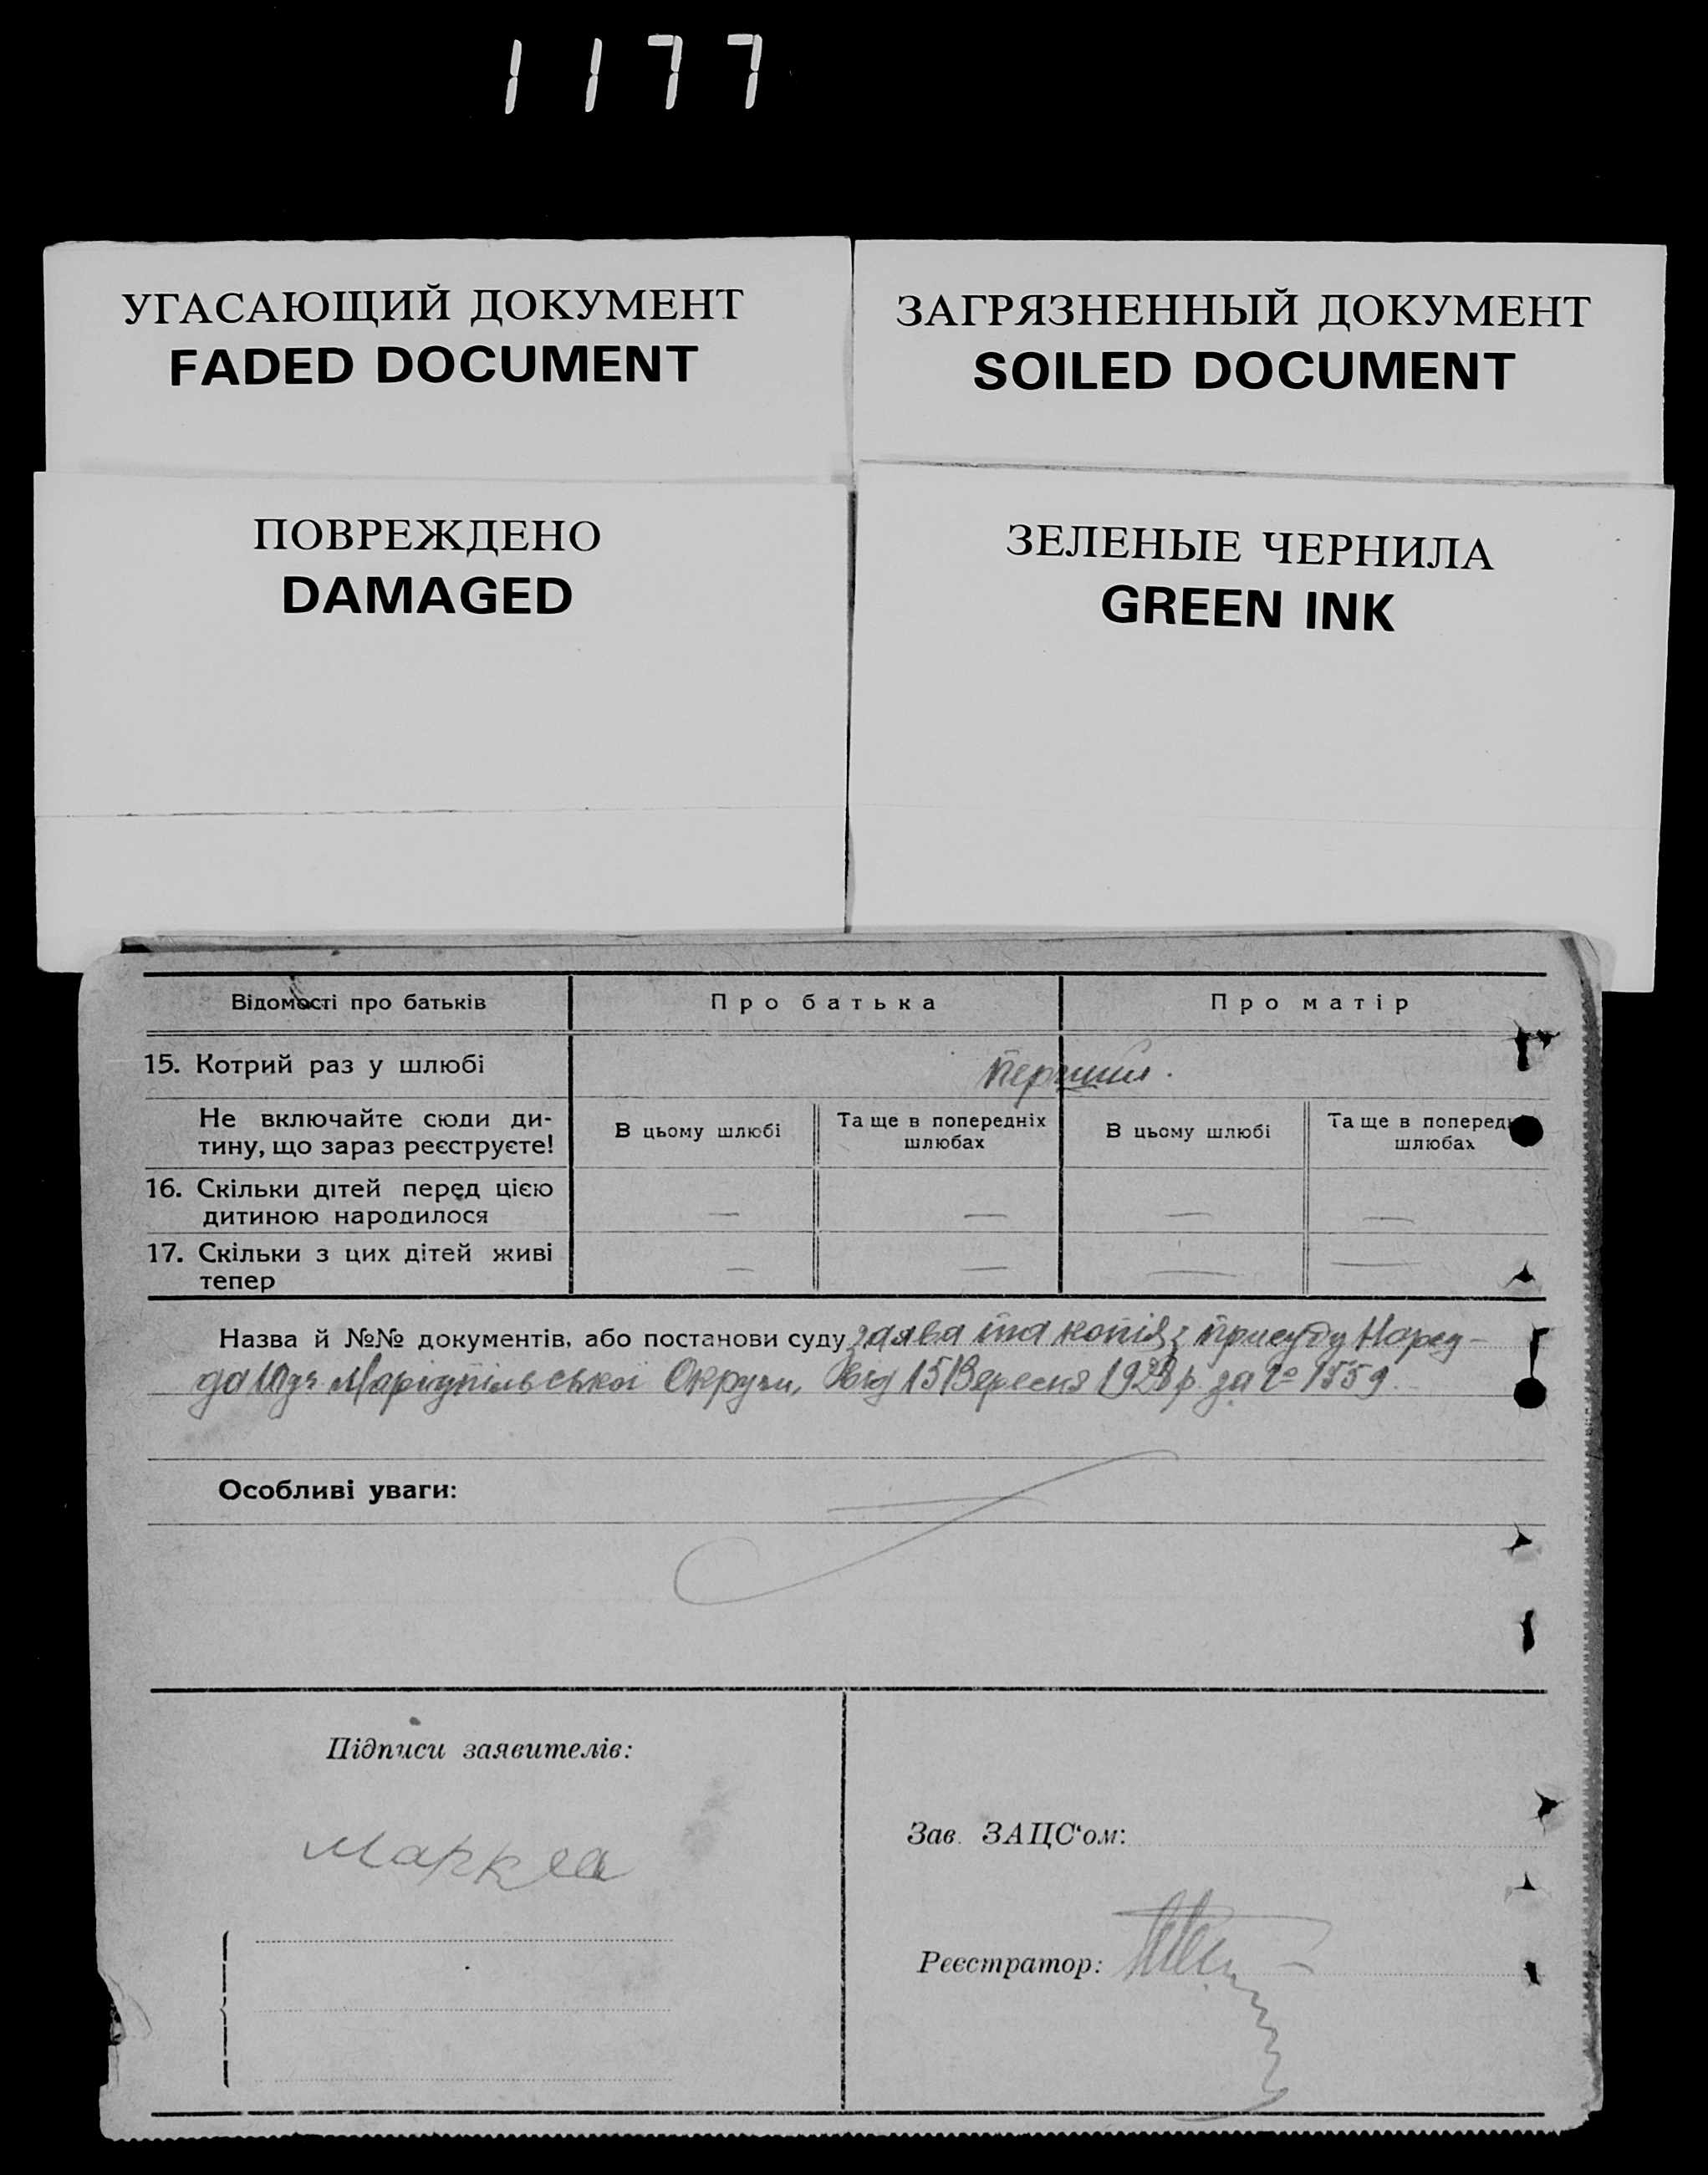 1177
УГАСАЮЩИЙ ДОКУМЕНТ
FADED DOCUMENT
ЗАГРЯЗНЕННЫЙ ДОКУМЕНТ
SOILED DOCUMENT
ПОВРЕЖДЕНО
DAMAGED
ЗЕЛЕНЫЕ ЧЕРНИЛА
GREEN INK
Відомості про батьків
Про батька
Про матір
15. Котрий раз у шлюбі
перший.
Не включайте сюди ди-
тину, що зараз реєструєте!
В цьому шлюбі
Та ще в попередніх
шлюбах
В цьому шлюбі
Та ще в поперед
шлюбах
16. Скільки дітей перед цією
дитиною народилося
— — — —
17. Скільки з цих дітей живі
тепер
— — — —
Назва й №№ документів, або постанови суду заява та копія з присуду
Маріупільської Округи, від 15 Вересня 1928 р. за № 1559
Особливі уваги:
Підписи заявителів:
Маркла
Зав. ЗАЦС'ом:
Реєстратор: